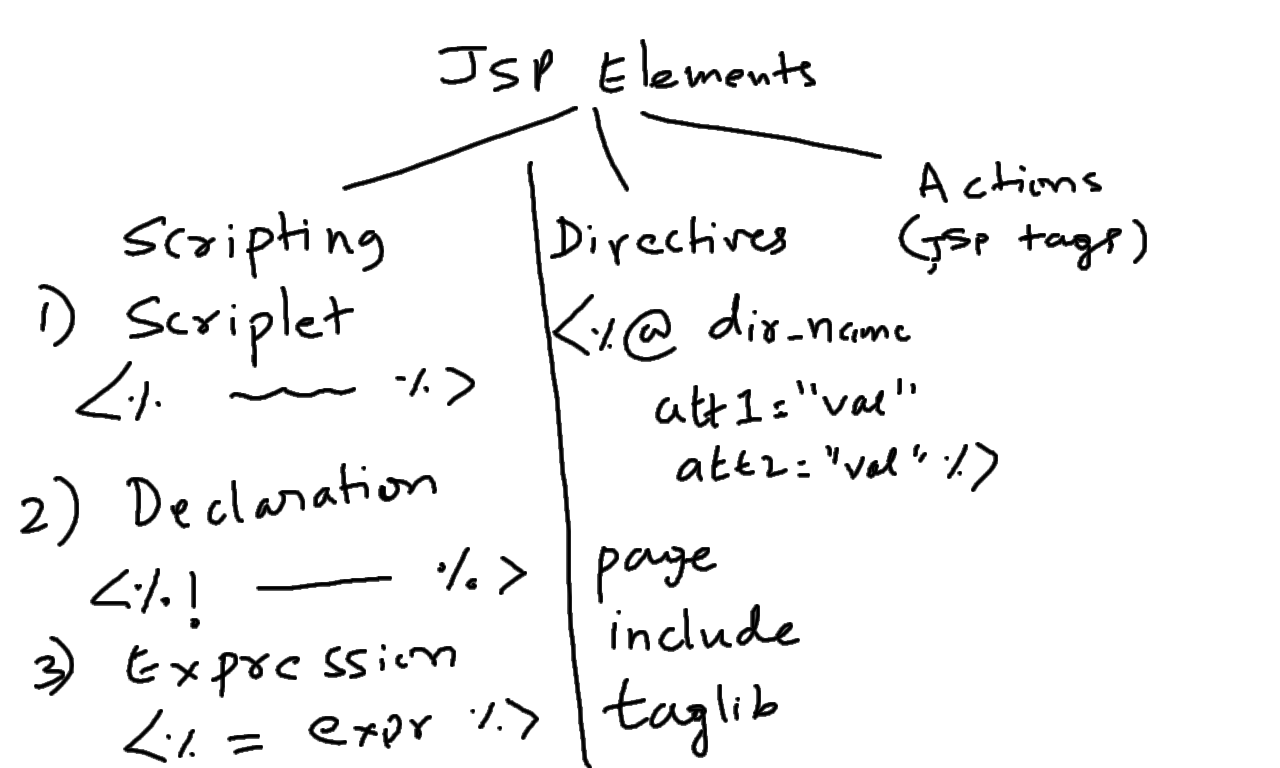 JSP Elements
Scripting
1) Scriplet
<% %>
2) Declaration
<%! %>
3) Expression
<% = expr %>
Directives
<%@ dir_name
att1="val"
att2="val" %>
page
include
taglib
Actions
(JSP tags)